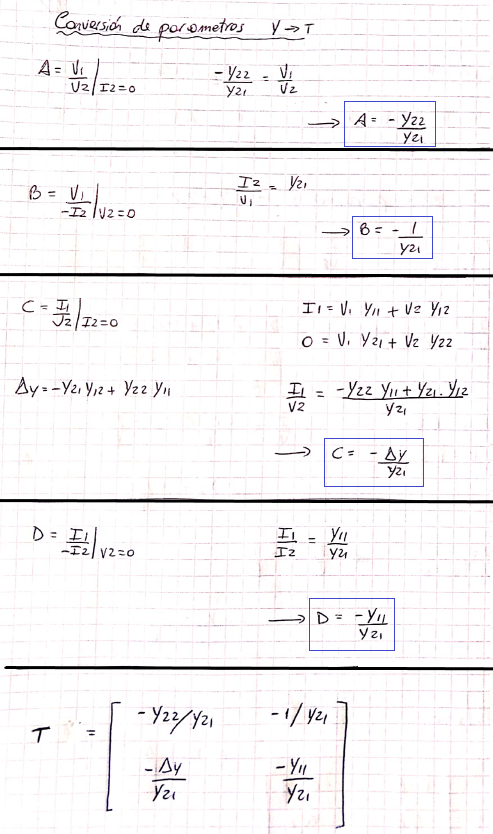 Conversión de parametros Y → T
A = V1/V2 | I2=0    -Y22/Y21 = V1/V2
→ A = -Y22/Y21
B = V1/-I2 | V2=0    I2/V1 = Y21
→ B = -1/Y21
C = I1/V2 | I2=0    I1 = V1 Y11 + V2 Y12
0 = V1 Y21 + V2 Y22
Δy = -Y21 Y12 + Y22 Y11    I1/V2 = (-Y22 Y11 + Y21 . Y12)/Y21
→ C = -Δy/Y21
D = I1/-I2 | V2=0    I1/I2 = Y11/Y21
→ D = -Y11/Y21
T = [ -Y22/Y21    -1/Y21
-Δy/Y21    -Y11/Y21 ]